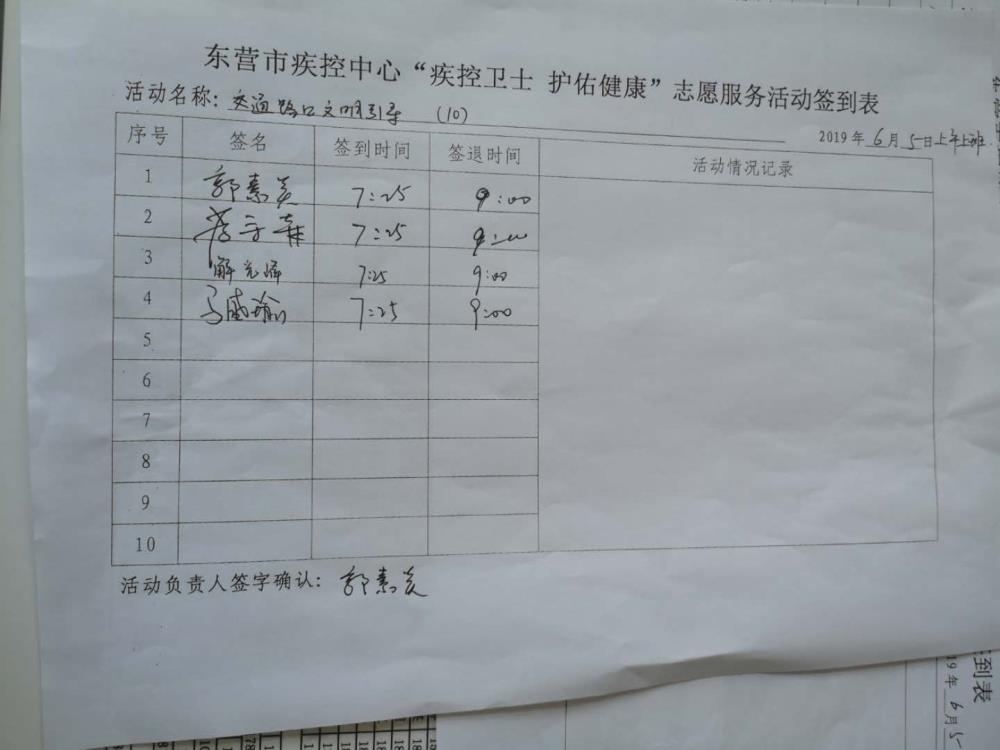 东营市疾控中心“疾控卫士 护佑健康”志愿服务活动签到表
活动名称：交通路口文明引导 （10）
2019 年 6 月 5 日上午上班
序号 签名 签到时间 签退时间 活动情况记录
1 郭素炎 7:25 9:00
2 7:25 9:00
3 解光峰 7:25 9:00
4 马盛瑜 7:25 9:00
5
6
7
8
9
10
活动负责人签字确认：郭素炎
到表
19 年 6 月 5